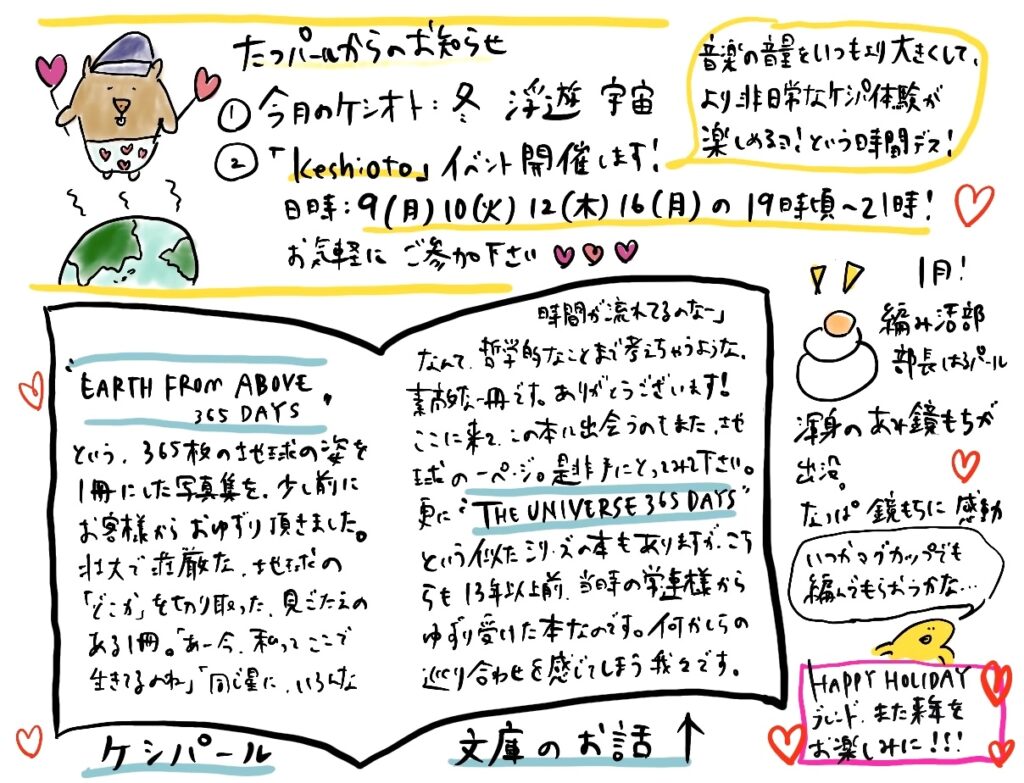 たつパールからのお知らせ
① 今月のケシオト：冬 浮遊 宇宙
②「keshioto」イベント開催します！
日時：9(月)10(火)12(木)16(月)の19時頃〜21時！
お気軽にご参加下さい
音楽の音量をいつもより大きくして、
より非日常なケシパ体験が
楽しめるヨ！という時間デス！
"EARTH FROM ABOVE
365 DAYS"
という、365枚の地球の姿を
1冊にした写真集を、少し前に
お客様からおゆずり頂きました。
壮大で荘厳な、地球の
「どこか」を切り取った、見ごたえの
ある1冊。「あー今、私ってここで
生きてるのね」「同じ星に、いろんな
時間が流れてるのなー」
なんて、哲学的なことまで考えちゃうような、
素敵な一冊です。ありがとうございます！
ここに来て、この本に出会うのもまた、地
球の一ページ。是非手にとってみて下さい。
更に"THE UNIVERSE 365 DAYS"
という似たシリーズの本もありますが、こち
らも13年以上前、当時の常連様から
ゆずり受けた本なのです。何かしらの
巡り合わせを感じてしまう我々です。
ケシパール 文庫のお話 ↑
1月！
編み活部
部長はるパール
渾身のあみ鏡もちが
出没。
なっぱ鏡もちに感動
いつかマグカップでも
編んでもらおうかな…
HAPPY HOLIDAY
ブレンド、また来年を
お楽しみに！！！